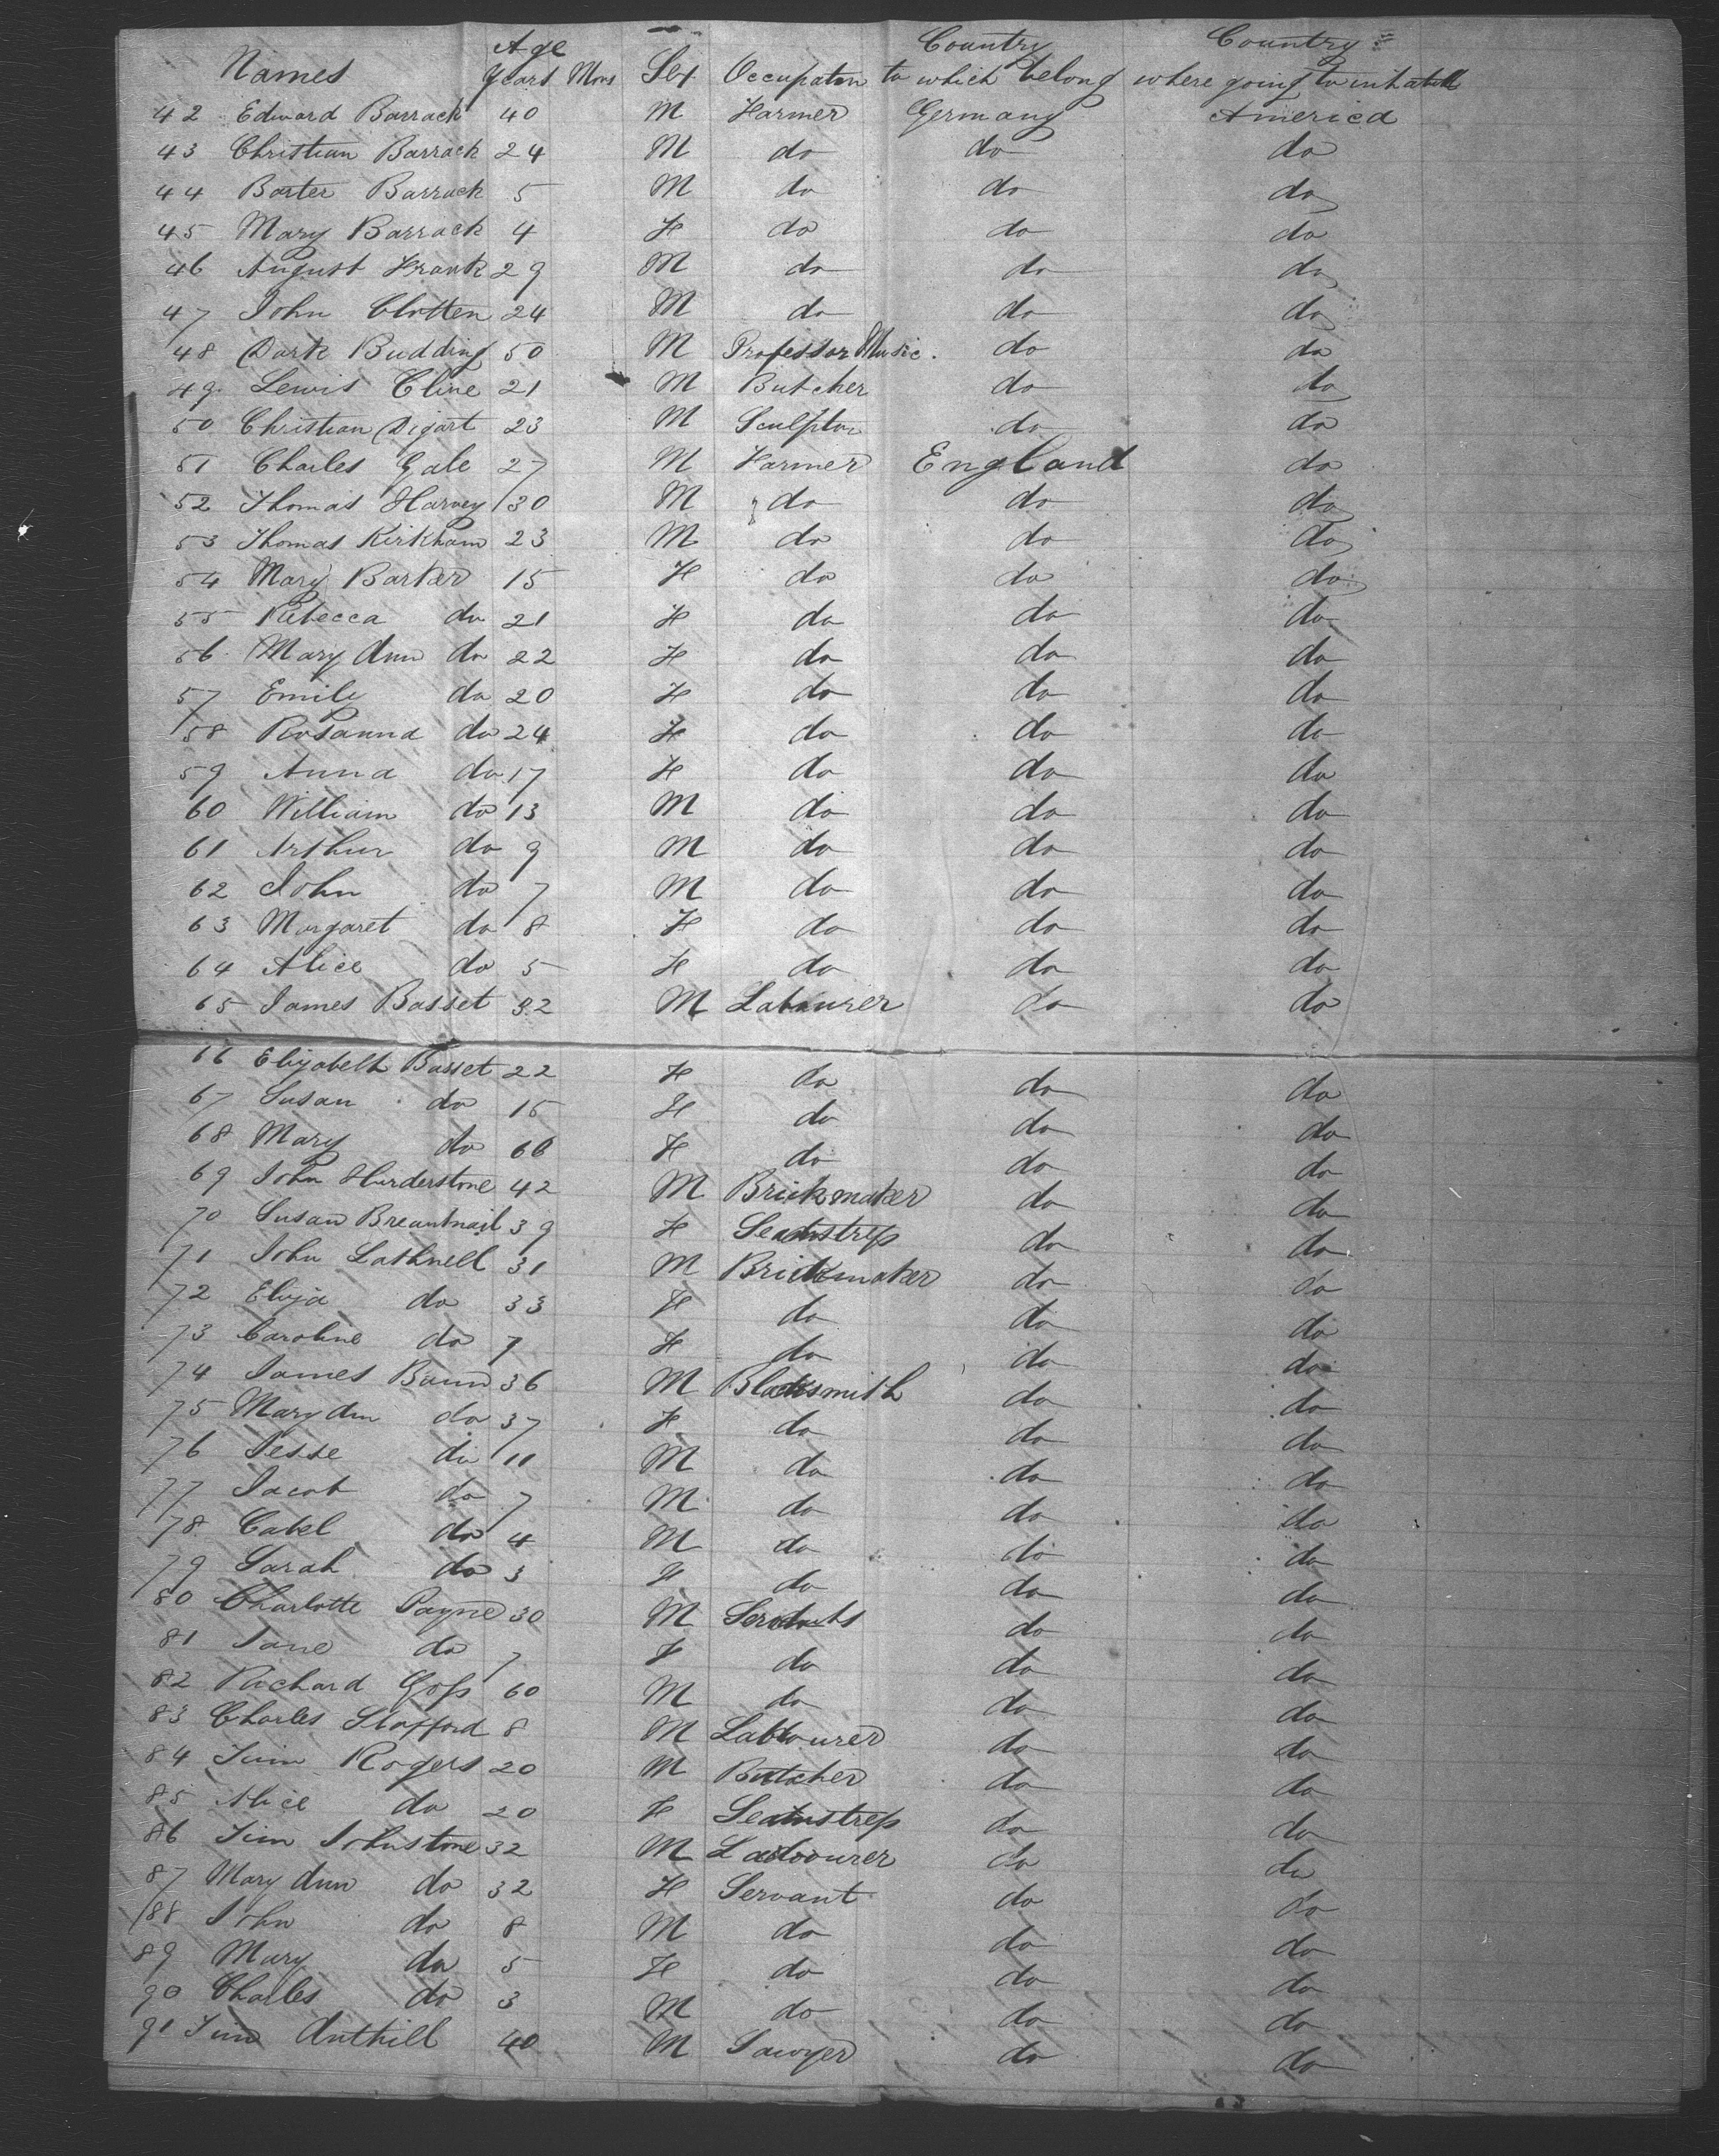 Names Age Years Mons Sex Occupaton Country to which belong Country where going to inhabit
42 Edward Barrack 40 M Farmer Germany America
43 Christian Barrack 24 M do do do
44 Barter Barrack 5 M do do do
45 Mary Barrack 4 F do do do
46 August Frank 29 M do do do
47 John Clotten 24 M do do do
48 Dark Budding 50 M Professor Music. do do
49 Lewis Cline 21 M Butcher do do
50 Christian Digart 23 M Sculptor do do
51 Charles Gale 27 M Farmer England do
52 Thomas Harvey 30 M do do do
53 Thomas Kirkham 23 M do do do
54 Mary Barker 15 F do do do
55 Rebecca do 21 F do do do
56 Mary Ann do 22 F do do do
57 Emile do 20 F do do do
58 Rosanna do 24 F do do do
59 Anna do 17 F do do do
60 William do 13 M do do do
61 Arthur do 9 M do do do
62 John do 7 M do do do
63 Margaret do 8 F do do do
64 Alice do 5 F do do do
65 James Basset 32 M Labourer do do
66 Elizabeth Basset 22 F do do do
67 Susan do 15 F do do do
68 Mary do 66 F do do do
69 John Hurderstone 42 M Brickmaker do do
70 Susan 39 F Seamstress do do
71 John Lathnell 31 M Brickmaker do do
72 Eliza do 33 F do do do
73 Caroline do 9 F do do do
74 James 36 M Blacksmith do do
75 Mary Ann do 37 F do do do
76 Jesse do 11 M do do do
77 Jacob do 7 M do do do
78 Cabel do 4 M do do do
79 Sarah do 3 F do do do
80 Charlotte Payne 30 M Servants do do
81 Jane do 7 F do do do
82 Richard Goss 60 M do do do
83 Charles Stafford 8 M Labourer do do
84 Jim Rogers 20 M Butcher do do
85 Alice do 20 F Seamstress do do
86 Jim Johnstone 32 M Labourer do do
87 Mary Ann do 32 F Servant do do
88 John do 8 M do do do
89 Mary do 5 F do do do
90 Charles do 3 M do do do
91 Jim Anthill 40 M Sawyer do do